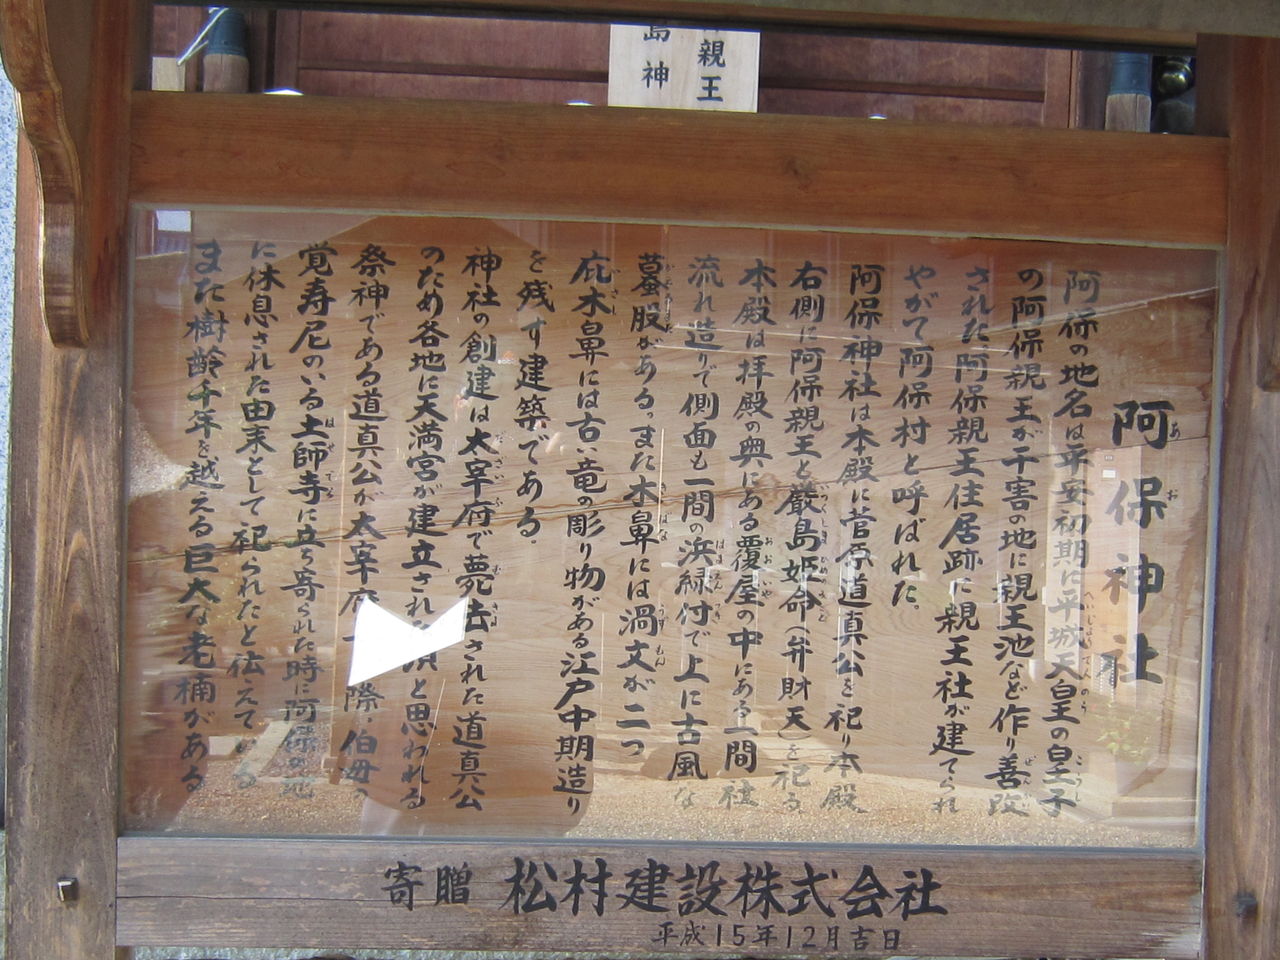 親王
島神
阿保神社
阿保の地名は平安初期に平城天皇の皇子
の阿保親王が干害の地に親王池など作り善政
された阿保親王住居跡に親王社が建てられ
やがて阿保村と呼ばれた。
阿保神社は本殿に菅原道真公を祀り本殿
右側に阿保親王と厳島姫命(弁財天)を祀る
本殿は拝殿の奥にある覆屋の中にある一間社
流れ造りで側面も一間の浜縁付で上に古風な
蟇股がある。また木鼻には渦文が二つ
庇木鼻には古い竜の彫り物がある江戸中期造り
を残す建築である。
神社の創建は太宰府で薨去された道真公
のため各地に天満宮が建立された頃と思われる
祭神である道真公が太宰府 際、伯母の
覚寿尼のいる土師寺に立ち寄られた時に阿保の地
に休息された由来として祀られたと伝えている
また樹齢千年を越える巨大な老楠がある
寄贈 松村建設株式会社
平成15年12月吉日